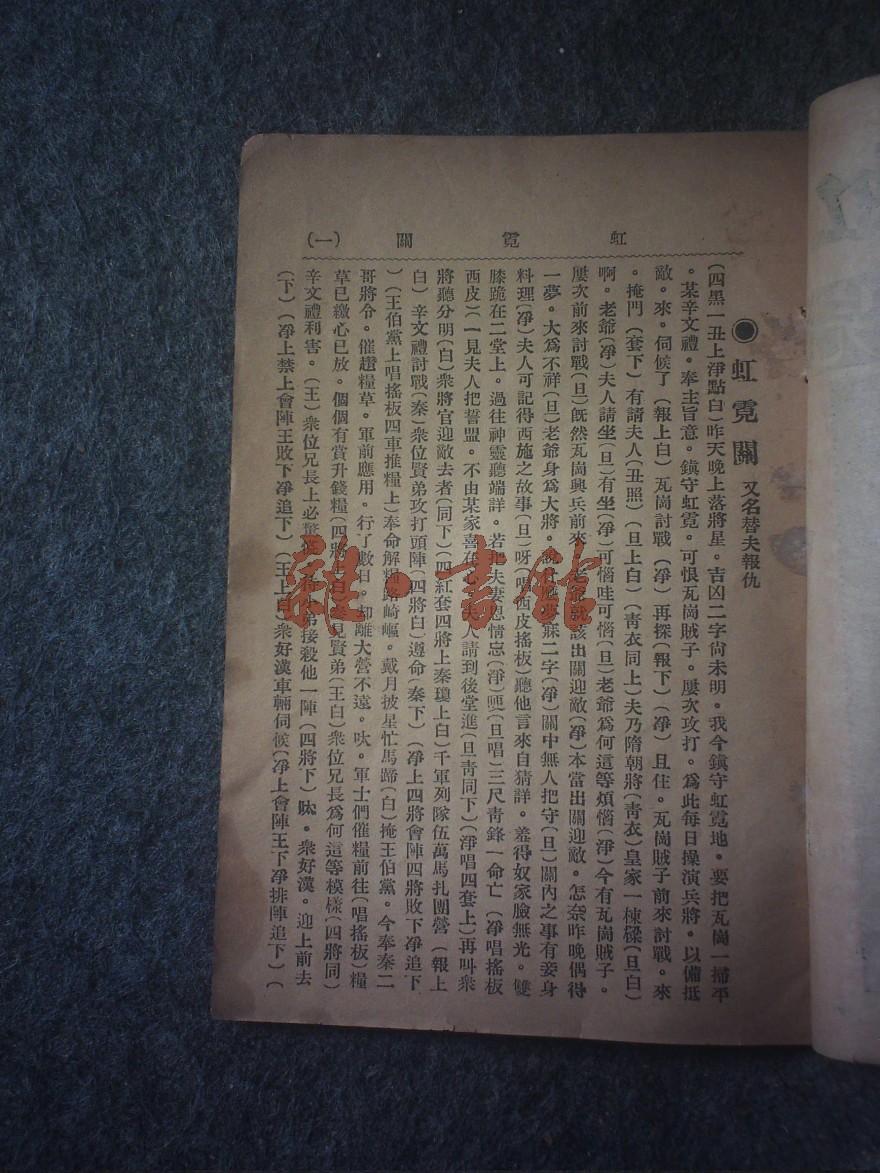 虹霓關 (一)
●虹霓關 又名替夫報仇
(四黑一丑上淨點白)昨天晚上落將星。吉凶二字尙未明。我今鎭守虹霓地。要把瓦崗一掃平
。某辛文禮。奉主旨意。鎭守虹霓。可恨瓦崗賊子。屢次攻打。爲此每日操演兵將。以備抵
敵。來。伺候了(報上白)瓦崗討戰(淨)再探(報下)(淨)且住。瓦崗賊子前來討戰。來
。掩門(套下)有請夫人(丑照)(旦上白)(靑衣同上)夫乃隋朝將(靑衣)皇家一棟樑(旦白)
啊。老爺(淨)夫人請坐(旦)有坐(淨)可惱哇可惱(旦)老爺爲何這等煩惱(淨)今有瓦崗賊子。
屢次前來討戰(旦)旣然瓦崗興兵前來。老爺就該出關迎敵(淨)本當出關迎敵。怎奈昨晚偶得
一夢。大爲不祥(旦)老爺身爲大將。寐二字(淨)關中無人把守(旦)關內之事有妾身
料理(淨)夫人可記得西施之故事(旦)呀(唱西皮搖板)聽他言來自猜詳。羞得奴家臉無光。雙
膝跪在二堂上。過往神靈聽端詳。若把夫妻恩情忘(淨)哽(旦唱)三尺靑鋒一命亡(淨唱搖板
西皮)(一見夫人把誓盟。不由某家喜在心。夫人請到後堂進(旦靑同下)(淨唱四套上)再叫衆
將聽分明(白)衆將官迎敵去者(同下)(四紅套四將上秦瓊上白)千軍列隊伍萬馬扎團營(報上
白)辛文禮討戰(秦)衆位賢弟攻打頭陣(四將白)遵命(秦下)(淨上四將會陣四將敗下淨追下
)(王伯黨上唱搖板四車推糧上)奉命解糧路崎嶇。戴月披星忙馬蹄(白)掩王伯黨。今奉秦二
哥將令。催趲糧草。軍前應用。行了數日。却離大營不遠。吠。軍士們催糧前往(唱搖板)糧
草已繳心已放。個個有賞升錢糧(四將上白)參見賢弟(王白)衆位兄長爲何這等模樣(四將同)
辛文禮利害。(王)衆位兄長上必驚慌。待小弟接殺他一陣(四將下)吠。衆好漢。迎上前去
(下)(淨上禁上會陣王敗下淨追下)(王上白)衆好漢車輛伺候(淨上會陣王下淨排陣追下)(